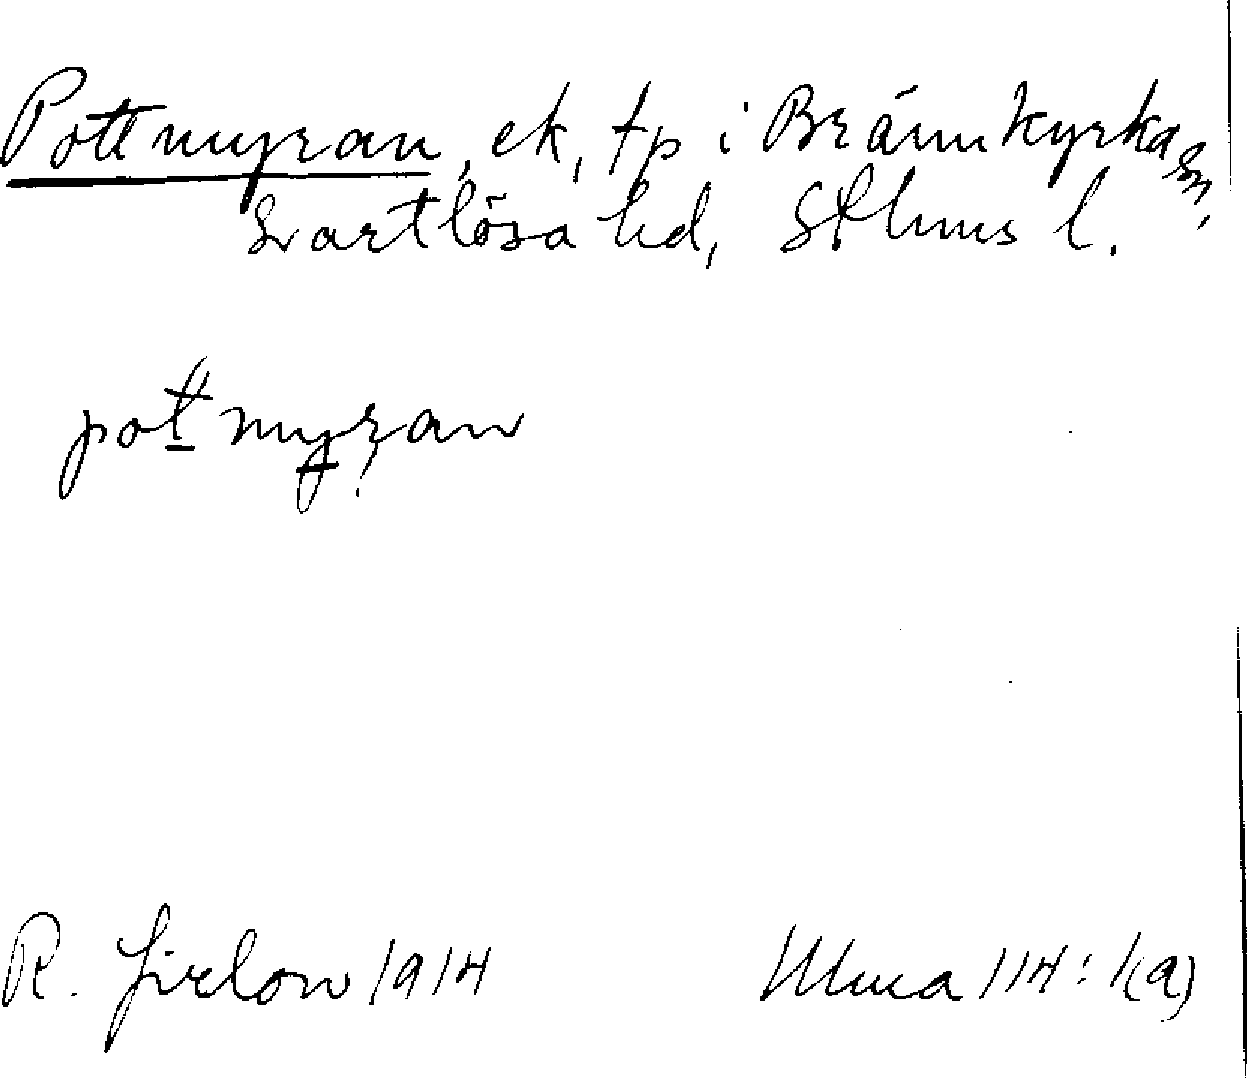 Pottmyran, ek, tp i Brännkyrka sn,
Svartlösa hd, Sthms l.
pot myran
R. Jirlow 1914
Ulma 114:1(a)